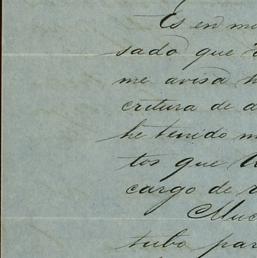 Es en mi
sado que
me avisa h
critura de a
he tenido m
tos que
cargo de
Muc
tubo par